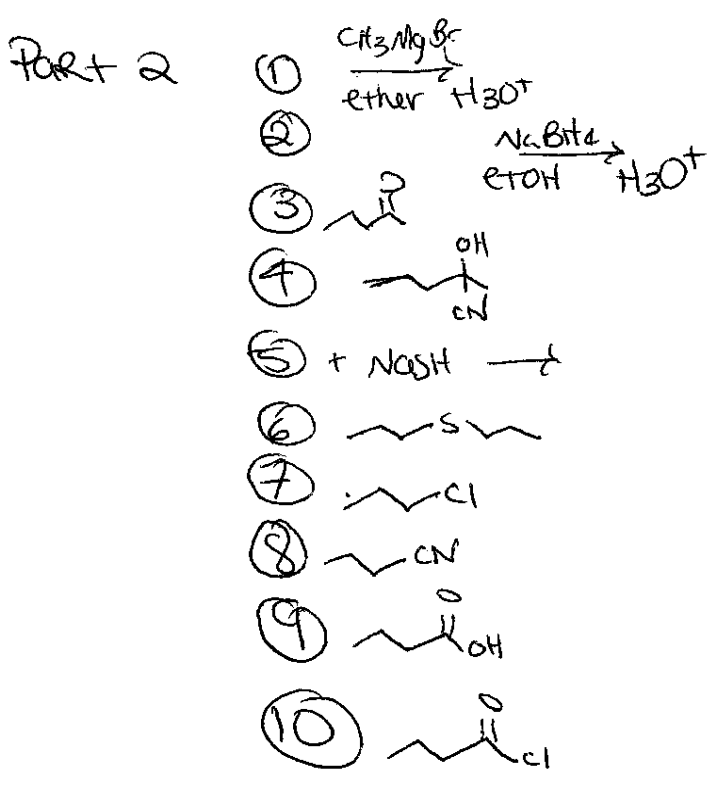 Part 2
① CH3MgBr
ether H3O+
② NaBH4
etOH H3O+
③ O
④ OH
CN
⑤ + NaSH
⑥ S
⑦ Cl
⑧ CN
⑨ O
OH
⑩ O
Cl